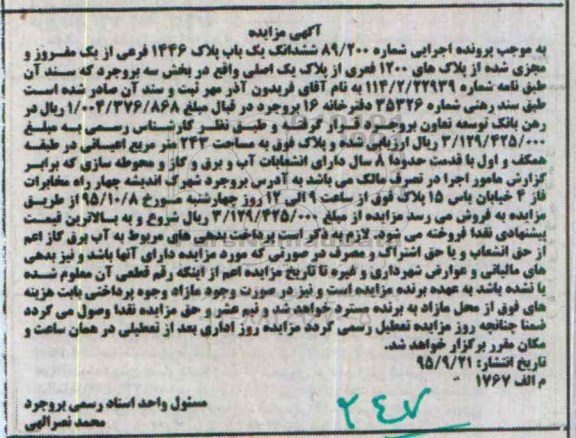 آگهی مزایده
به موجب پرونده اجرایی شماره ۸۹/۲۰۰ ششدانگ یک باب پلاک ۱۴۴۶ فرعی از یک مفروز و
مجزی شده از پلاک های ۱۲۰۰ فعری از پلاک یک اصلی واقع در بخش سه بروجرد که سند آن
طبق نامه شماره ۱۱۴/۲/۲۲۹۳۹ به نام آقای فریدون آذر مهر ثبت و سند آن صادر شده است
طبق سند رهنی شماره ۳۵۳۲۶ دفترخانه ۱۶ بروجرد در قبال مبلغ ۱/۰۰۴/۳۷۶/۸۶۸ ریال در
رهن بانک توسعه تعاون بروجرد قرار گرفته و طبق نظر کارشناس رسمی به مبلغ
۳/۱۲۹/۴۲۵/۰۰۰ ریال ارزیابی شده و پلاک فوق به مساحت ۲۴۳ متر مربع اعیانی در طبقه
همکف و اول با قدمت حدودا ۸ سال دارای انشعابات آب و برق و گاز و محوطه سازی که برابر
گزارش مامور اجرا در تصرف مالک می باشد به آدرس بروجرد شهرک اندیشه چهار راه مخابرات
فاز ۲ خیابان یاس ۱۵ پلاک فوق از ساعت ۹ الی ۱۲ روز چهارشنبه مورخ ۹۵/۱۰/۸ از طریق
مزایده به فروش می رسد مزایده از مبلغ ۳/۱۲۹/۴۲۵/۰۰۰ ریال شروع و به بالاترین قیمت
پیشنهادی نقدا فروخته می شود. لازم به ذکر است پرداخت بدهی های مربوط به آب برق گاز اعم
از حق انشعاب و یا حق اشتراک و مصرف در صورتی که مورد مزایده دارای آنها باشد و نیز بدهی
های مالیاتی و عوارض شهرداری و غیره تا تاریخ مزایده اعم از اینکه رقم قطعی آن معلوم شده
یا نشده باشد به عهده برنده مزایده است و نیز در صورت وجود مازاد وجوه پرداختی بابت هزینه
های فوق از محل مازاد به برنده مسترد خواهد شد و نیم عشر و حق مزایده نقدا وصول می گردد
ضمنا چنانچه روز مزایده تعطیل رسمی گردد مزایده روز اداری بعد از تعطیلی در همان ساعت و
مکان مقرر برگزار خواهد شد.
تاریخ انتشار: ۹۵/۹/۲۱
م الف ۱۷۶۷
مسئول واحد اسناد رسمی بروجرد
محمد نصرالهی
۲۴۷